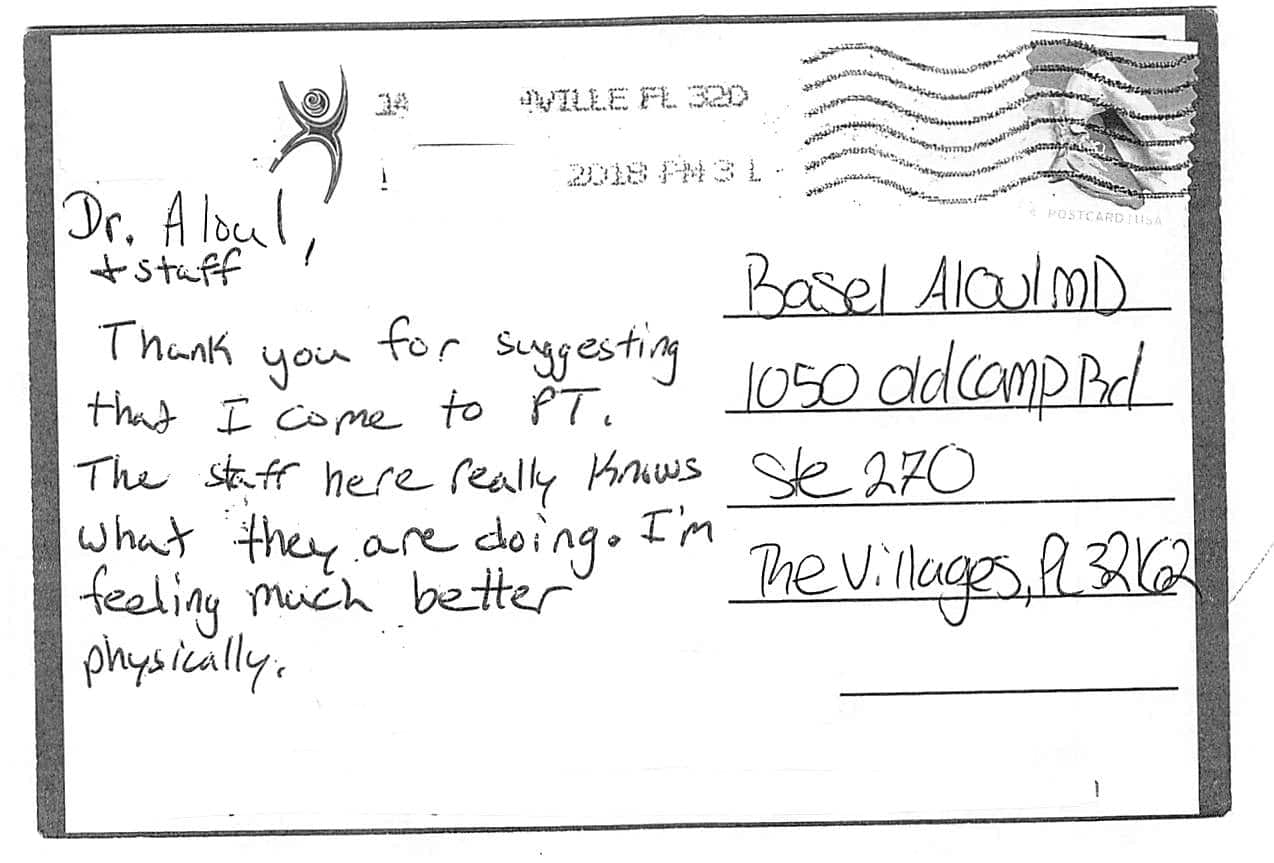 14 VILLE FL 320
2018 PM 3 L
POSTCARD USA
Dr. Aloul,
+ staff
Thank you for suggesting
that I come to PT.
The staff here really knows
what they are doing. I'm
feeling much better
physically.
Basel Aloul MD
1050 Old Camp Rd
Ste 270
The Villages, FL 32162